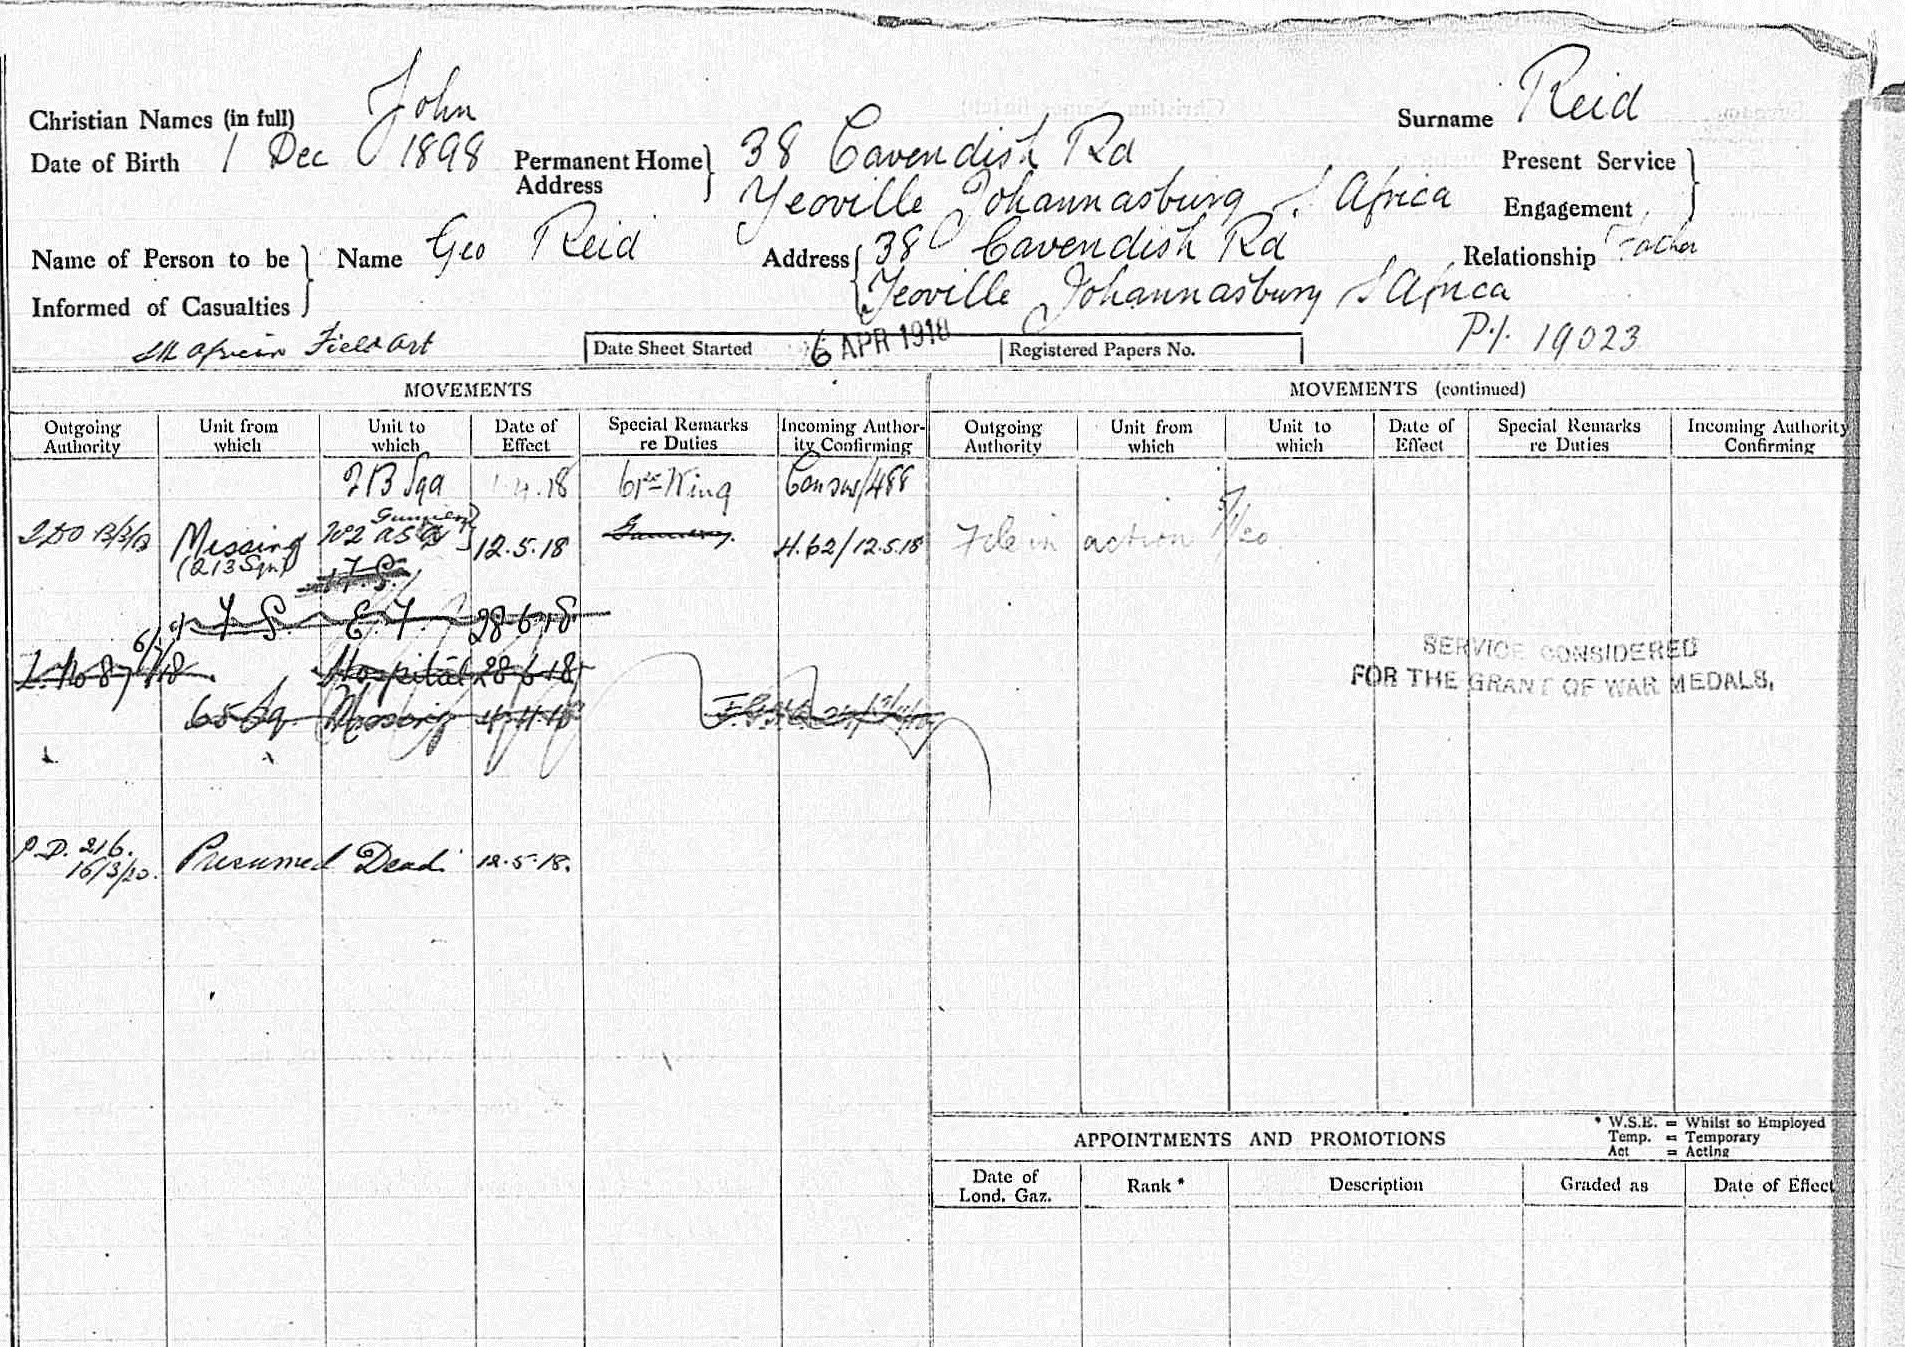 Christian Names (in full) John Surname Reid
Date of Birth 1 Dec 1898 Permanent Home Address 38 Cavendish Rd Present Service
Yeoville Johannasburg S. Africa Engagement
Name of Person to be Name Geo Reid Address 38 Cavendish Rd Relationship Father
Informed of Casualties Yeoville Johannasburg S Africa
Sth African Field Art Date Sheet Started 6 APR 1918 Registered Papers No. P/. 19023
MOVEMENTS MOVEMENTS (continued)
Outgoing Authority Unit from which Unit to which Date of Effect Special Remarks re Duties Incoming Authority Confirming Outgoing Authority Unit from which Unit to which Date of Effect Special Remarks re Duties Incoming Authority Confirming
213 Sqa 1.4.18 61st Wing Census/488
Missing 12.5.18 Gunnery. H.62/12.5.18 File in action
(213 Sqn)
28.6.18
Hospital 28.6.18
65 Sq Missing 4.11.18
SERVICE CONSIDERED
FOR THE GRANT OF WAR MEDALS.
P.D. 216. Presumed Dead. 12.5.18.
16/3/20.
* W.S.E. = Whilst so Employed
APPOINTMENTS AND PROMOTIONS Temp. = Temporary
Act = Acting
Date of Lond. Gaz. Rank * Description Graded as Date of Effect